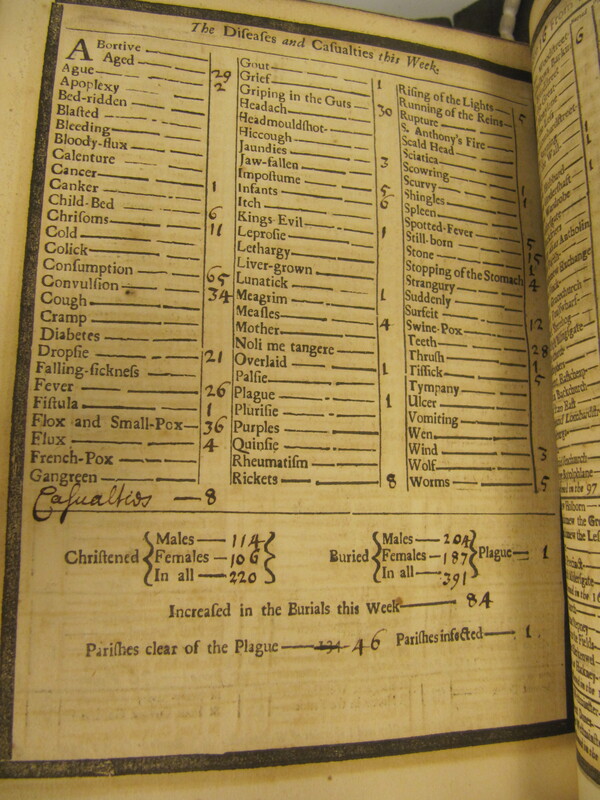 The Diſeaſes and Caſualties this Week.
ABortive
Aged 29
Ague 2
Apoplexy
Bed-ridden
Blaſted
Bleeding
Bloody-flux
Calenture
Cancer
Canker 1
Child-Bed 6
Chriſoms 11
Cold
Colick
Conſumption 65
Convulſion 34
Cough
Cramp
Diabetes
Dropſie 21
Falling-ſickneſs
Fever 26
Fiſtula 1
Flox and Small-Pox 36
Flux 4
French-Pox
Gangreen
Caſualties — 8
Gout
Grief 1
Griping in the Guts 30
Headach
Headmouldſhot
Hiccough
Jaundies 3
Jaw-fallen
Impoſtume
Infants 5
Itch 6
Kings Evil
Leproſie 1
Lethargy
Liver-grown
Lunatick
Meagrim 1
Meaſles 4
Mother
Noli me tangere
Overlaid 1
Palſie
Plague 1
Pluriſie
Purples
Quinſie
Rheumatiſm
Rickets 8
Riſing of the Lights 5
Running of the Reins
Rupture
S. Anthony's Fire
Scald Head
Sciatica
Scowring
Scurvy 1
Shingles 1
Spleen
Spotted-Fever 5
Still-born 15
Stone 1
Stopping of the Stomach 4
Strangury
Suddenly
Surfeit 12
Swine-Pox
Teeth 28
Thruſh 1
Tiſſick 5
Tympany
Ulcer
Vomiting
Wen
Wind 3
Wolf
Worms 5
Chriſtened { Males — 114
Females — 106
In all — 220 }
Buried { Males — 204
Females — 187
In all — 391 } Plague — 1
Increaſed in the Burials this Week — 84
Pariſhes clear of the Plague — 134 46 Pariſhes infected — 1